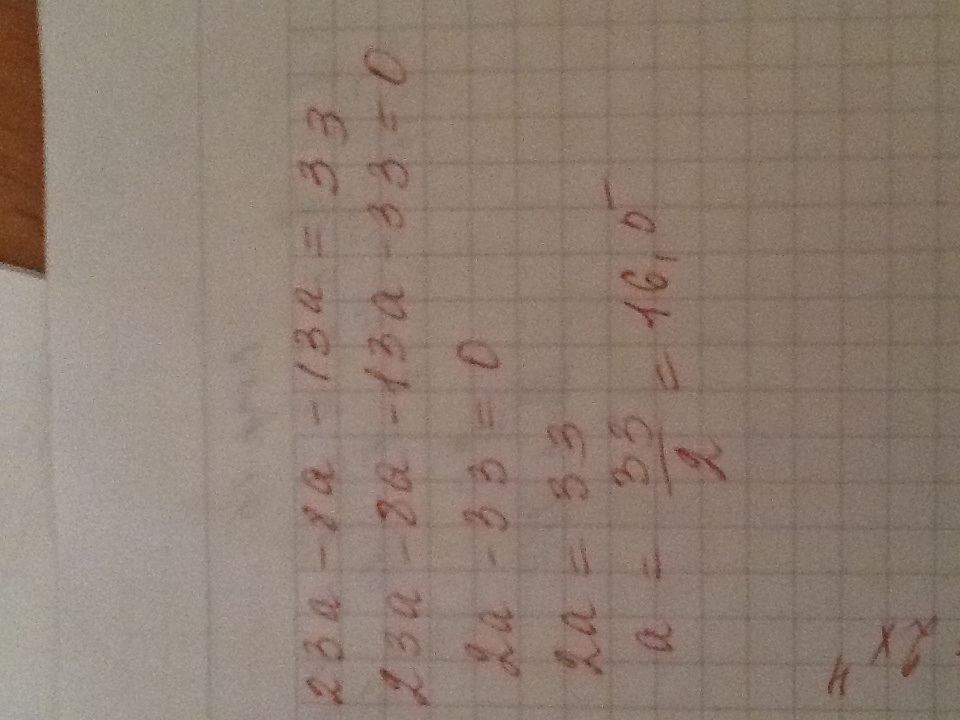 23a - 8a - 13a = 33
23a - 8a - 13a - 33 = 0
2a - 33 = 0
2a = 33
a = 33/2 = 16,5